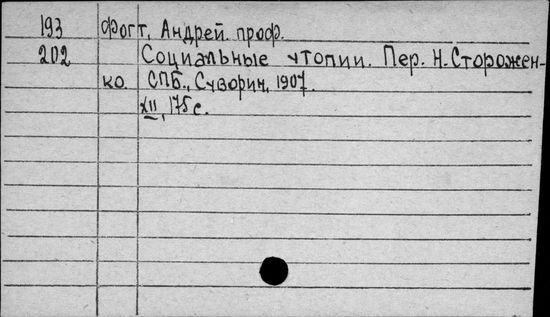 193 Фогт, Андрей проф.
202 Социальные утопии. Пер. Н. Сторожен-
ко. СПБ., Суворин, 1907.
XII, 175 с.